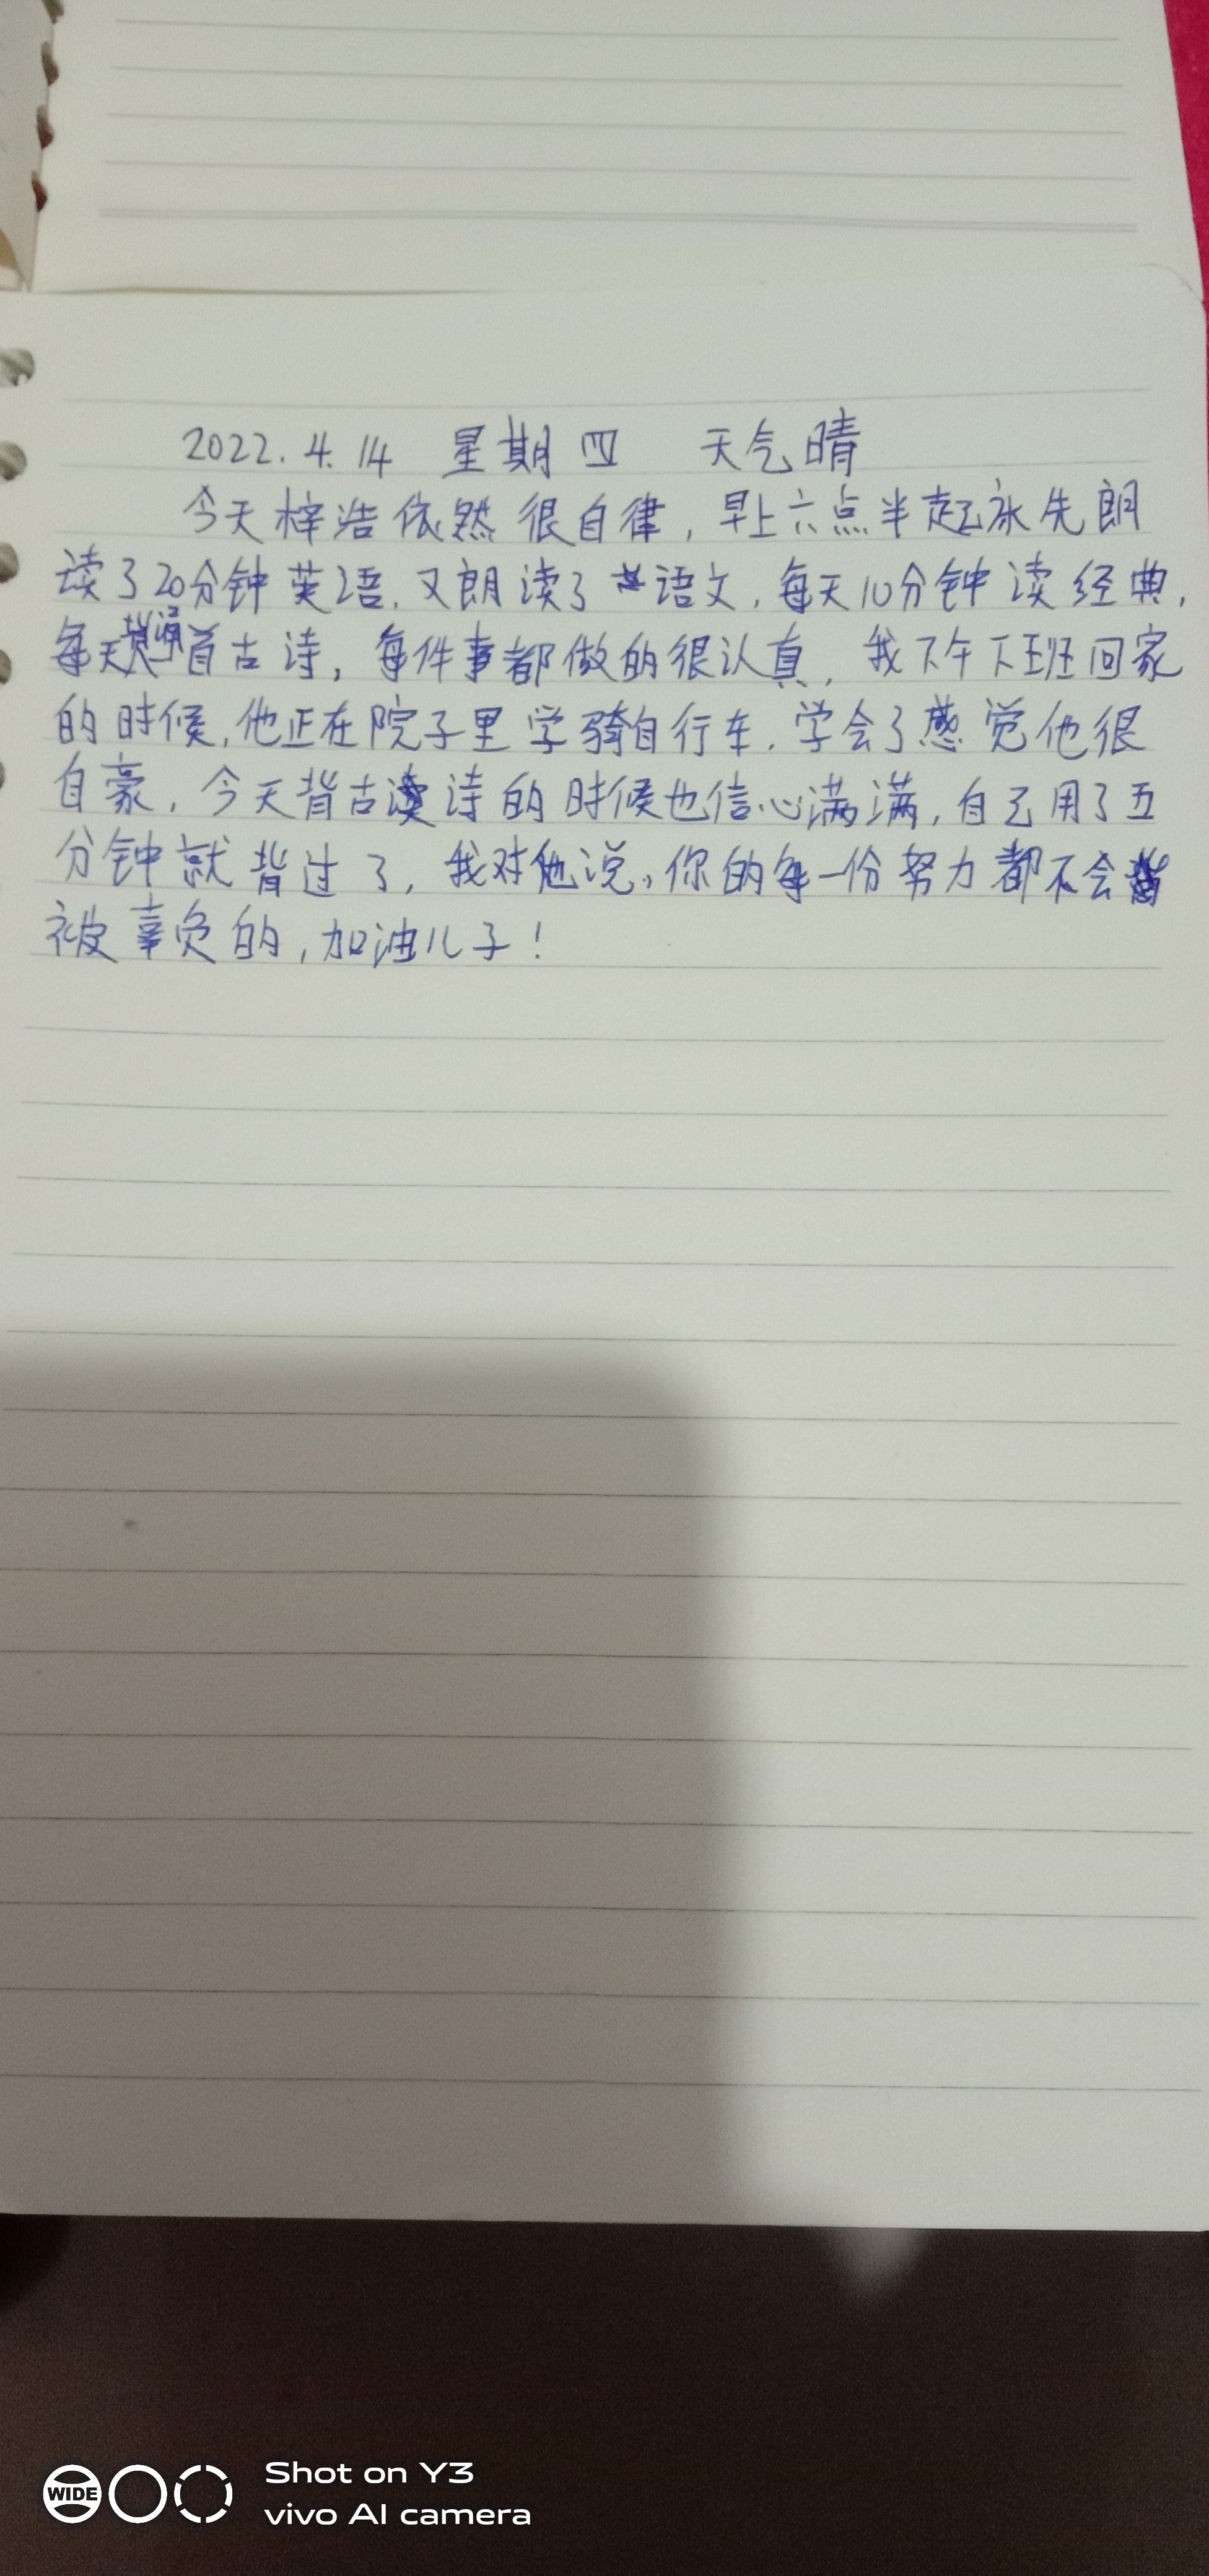 2022.4.14 星期四 天气晴
今天梓浩依然很自律，早上六点半起床先朗
读了20分钟英语，又朗读了语文，每天10分钟读经典，
每天首古诗，每件事都做的很认真，我下午下班回家
的时候，他正在院子里学骑自行车，学会了感觉他很
自豪，今天背古诗的时候也信心满满，自己用了五
分钟就背过了，我对他说，你的每一份努力都不会
被辜负的，加油儿子！
WIDE
Shot on Y3
vivo AI camera